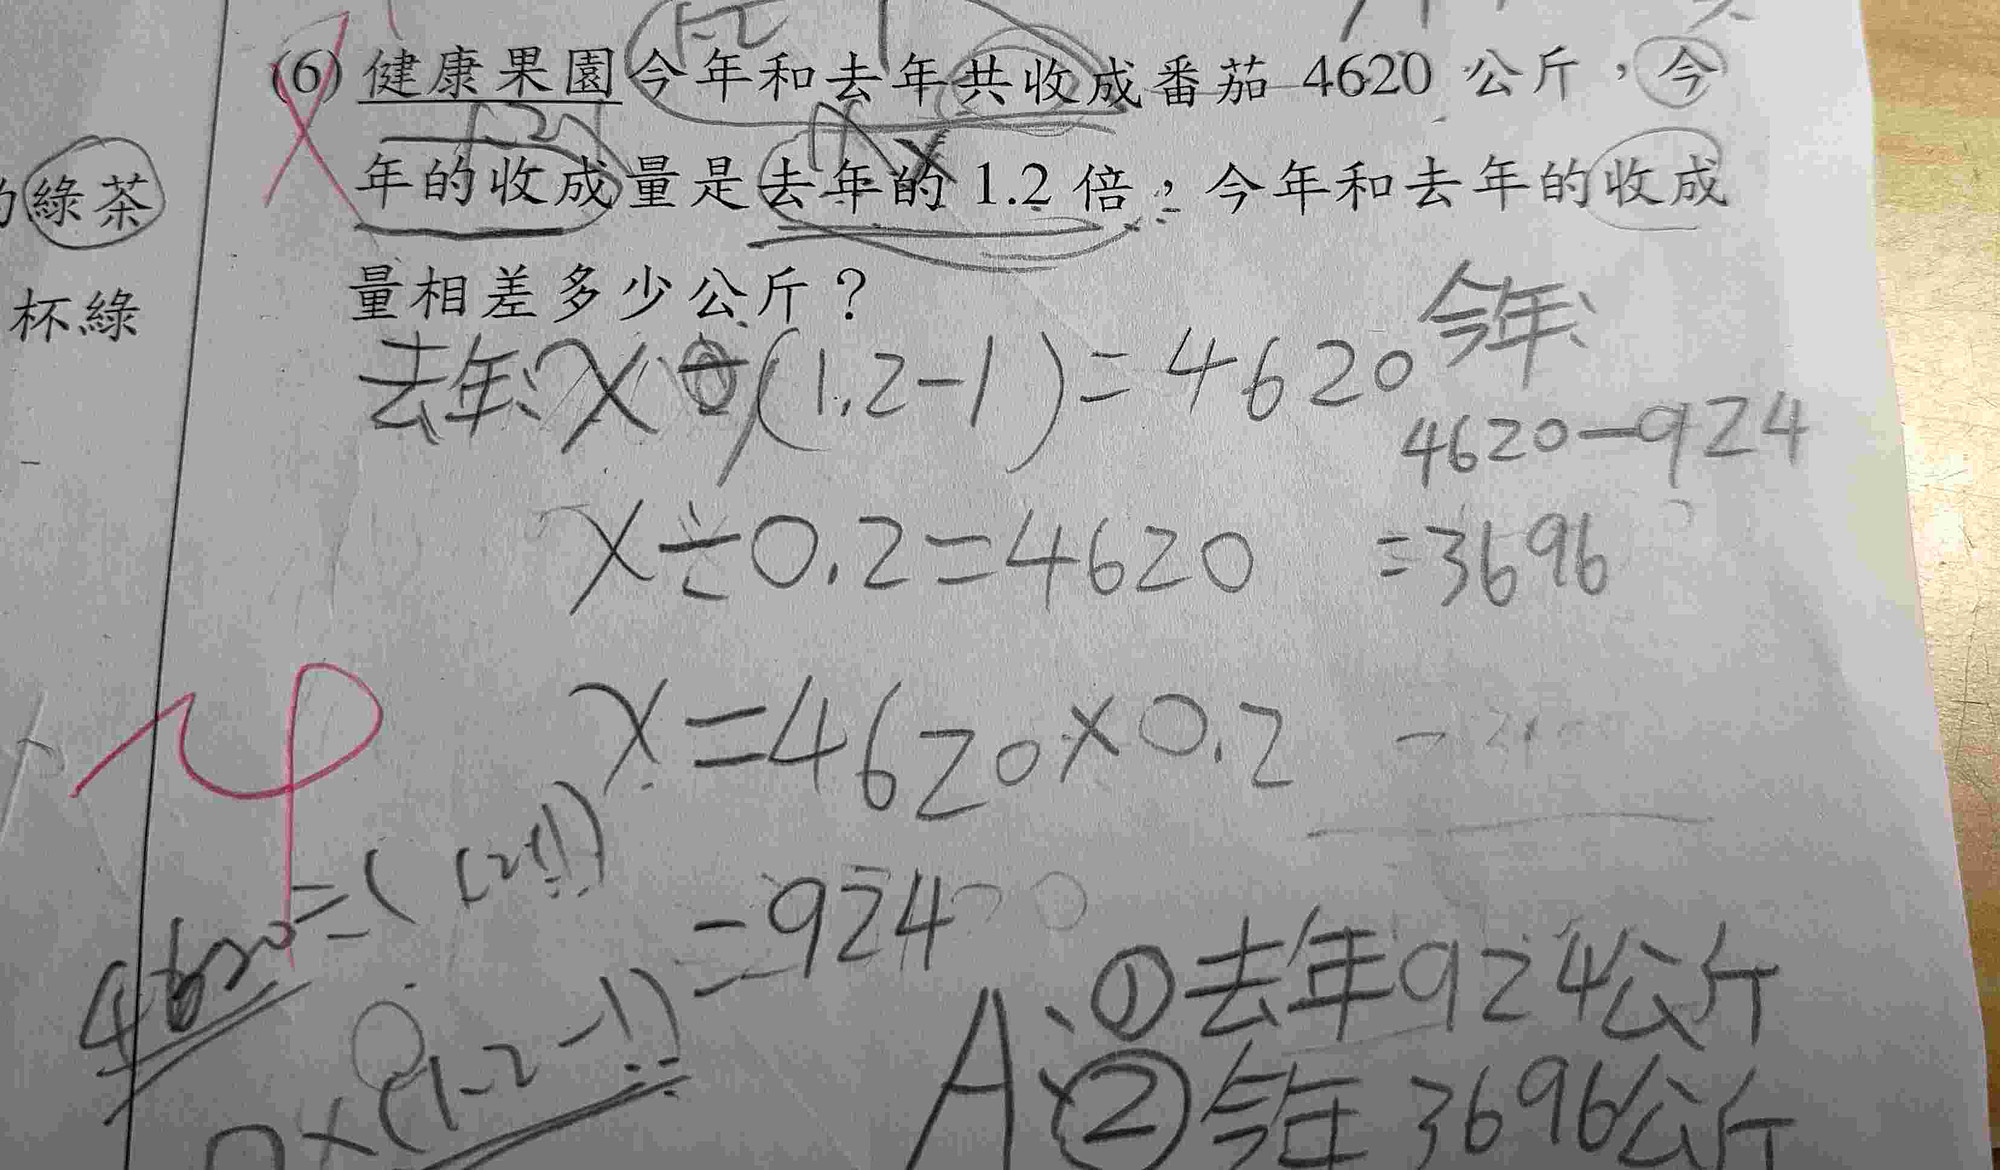 (6) 健康果園今年和去年共收成番茄 4620 公斤，今
年的收成量是去年的 1.2 倍，今年和去年的收成
量相差多少公斤？
綠茶
杯綠
去年: x÷(1.2-1)=4620
x÷0.2=4620
x=4620×0.2
=924
今年:
4620-924
=3696
4620÷(1.2+1)
×(1.2-1)
A: ①去年924公斤
②今年3696公斤